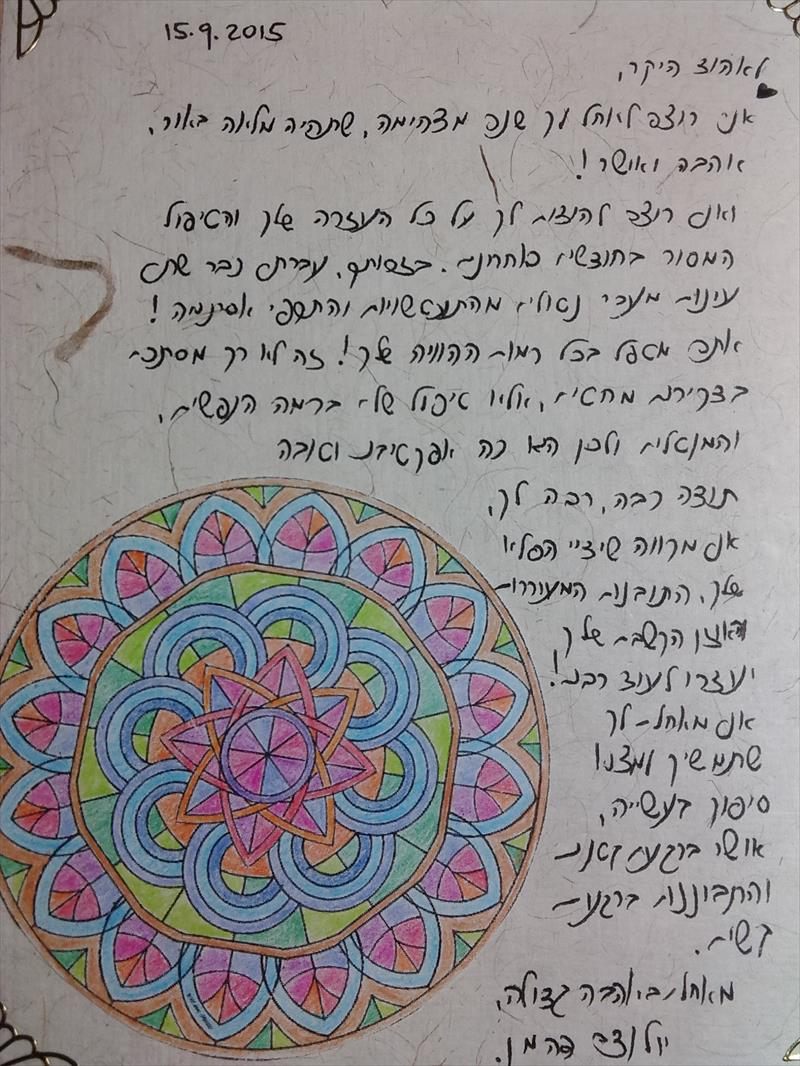 15.9.2015
לאהוד היקר,
אני רוצה לאחל לך שנה מדהימה, שתהיה מלאה באור,
אהבה ואושר!
ואני רוצה להודות לך על כל העזרה שלך והטיפול
המסור בחודשים האחרונים. בזכותך, עברתי כבר שתי
עונות מעבר נטולות מהתעטשויות והתקפי אסטמה!
אתה מטפל בכל רמות ההוויה שלך! זה לא רק מסתכם
בדקירות מחטים, אלא טיפול שלם ברמה הנפשית,
והמנטלית ולכן הוא כה אפקטיבי וטובה
תודה רבה, רבה לך,
אני מקווה שידיי הפלא
שלך, התובנות המעוררות
והאוזן הקשבת שלך
יעזרו לעוד רבים!
אני מאחלת לך
שתמשיך למצוא
סיפוק בעשייה,
אושר ברגעים קטנים
והתבוננות ברגעים
קשים.
מאחלת באהבה גדולה,